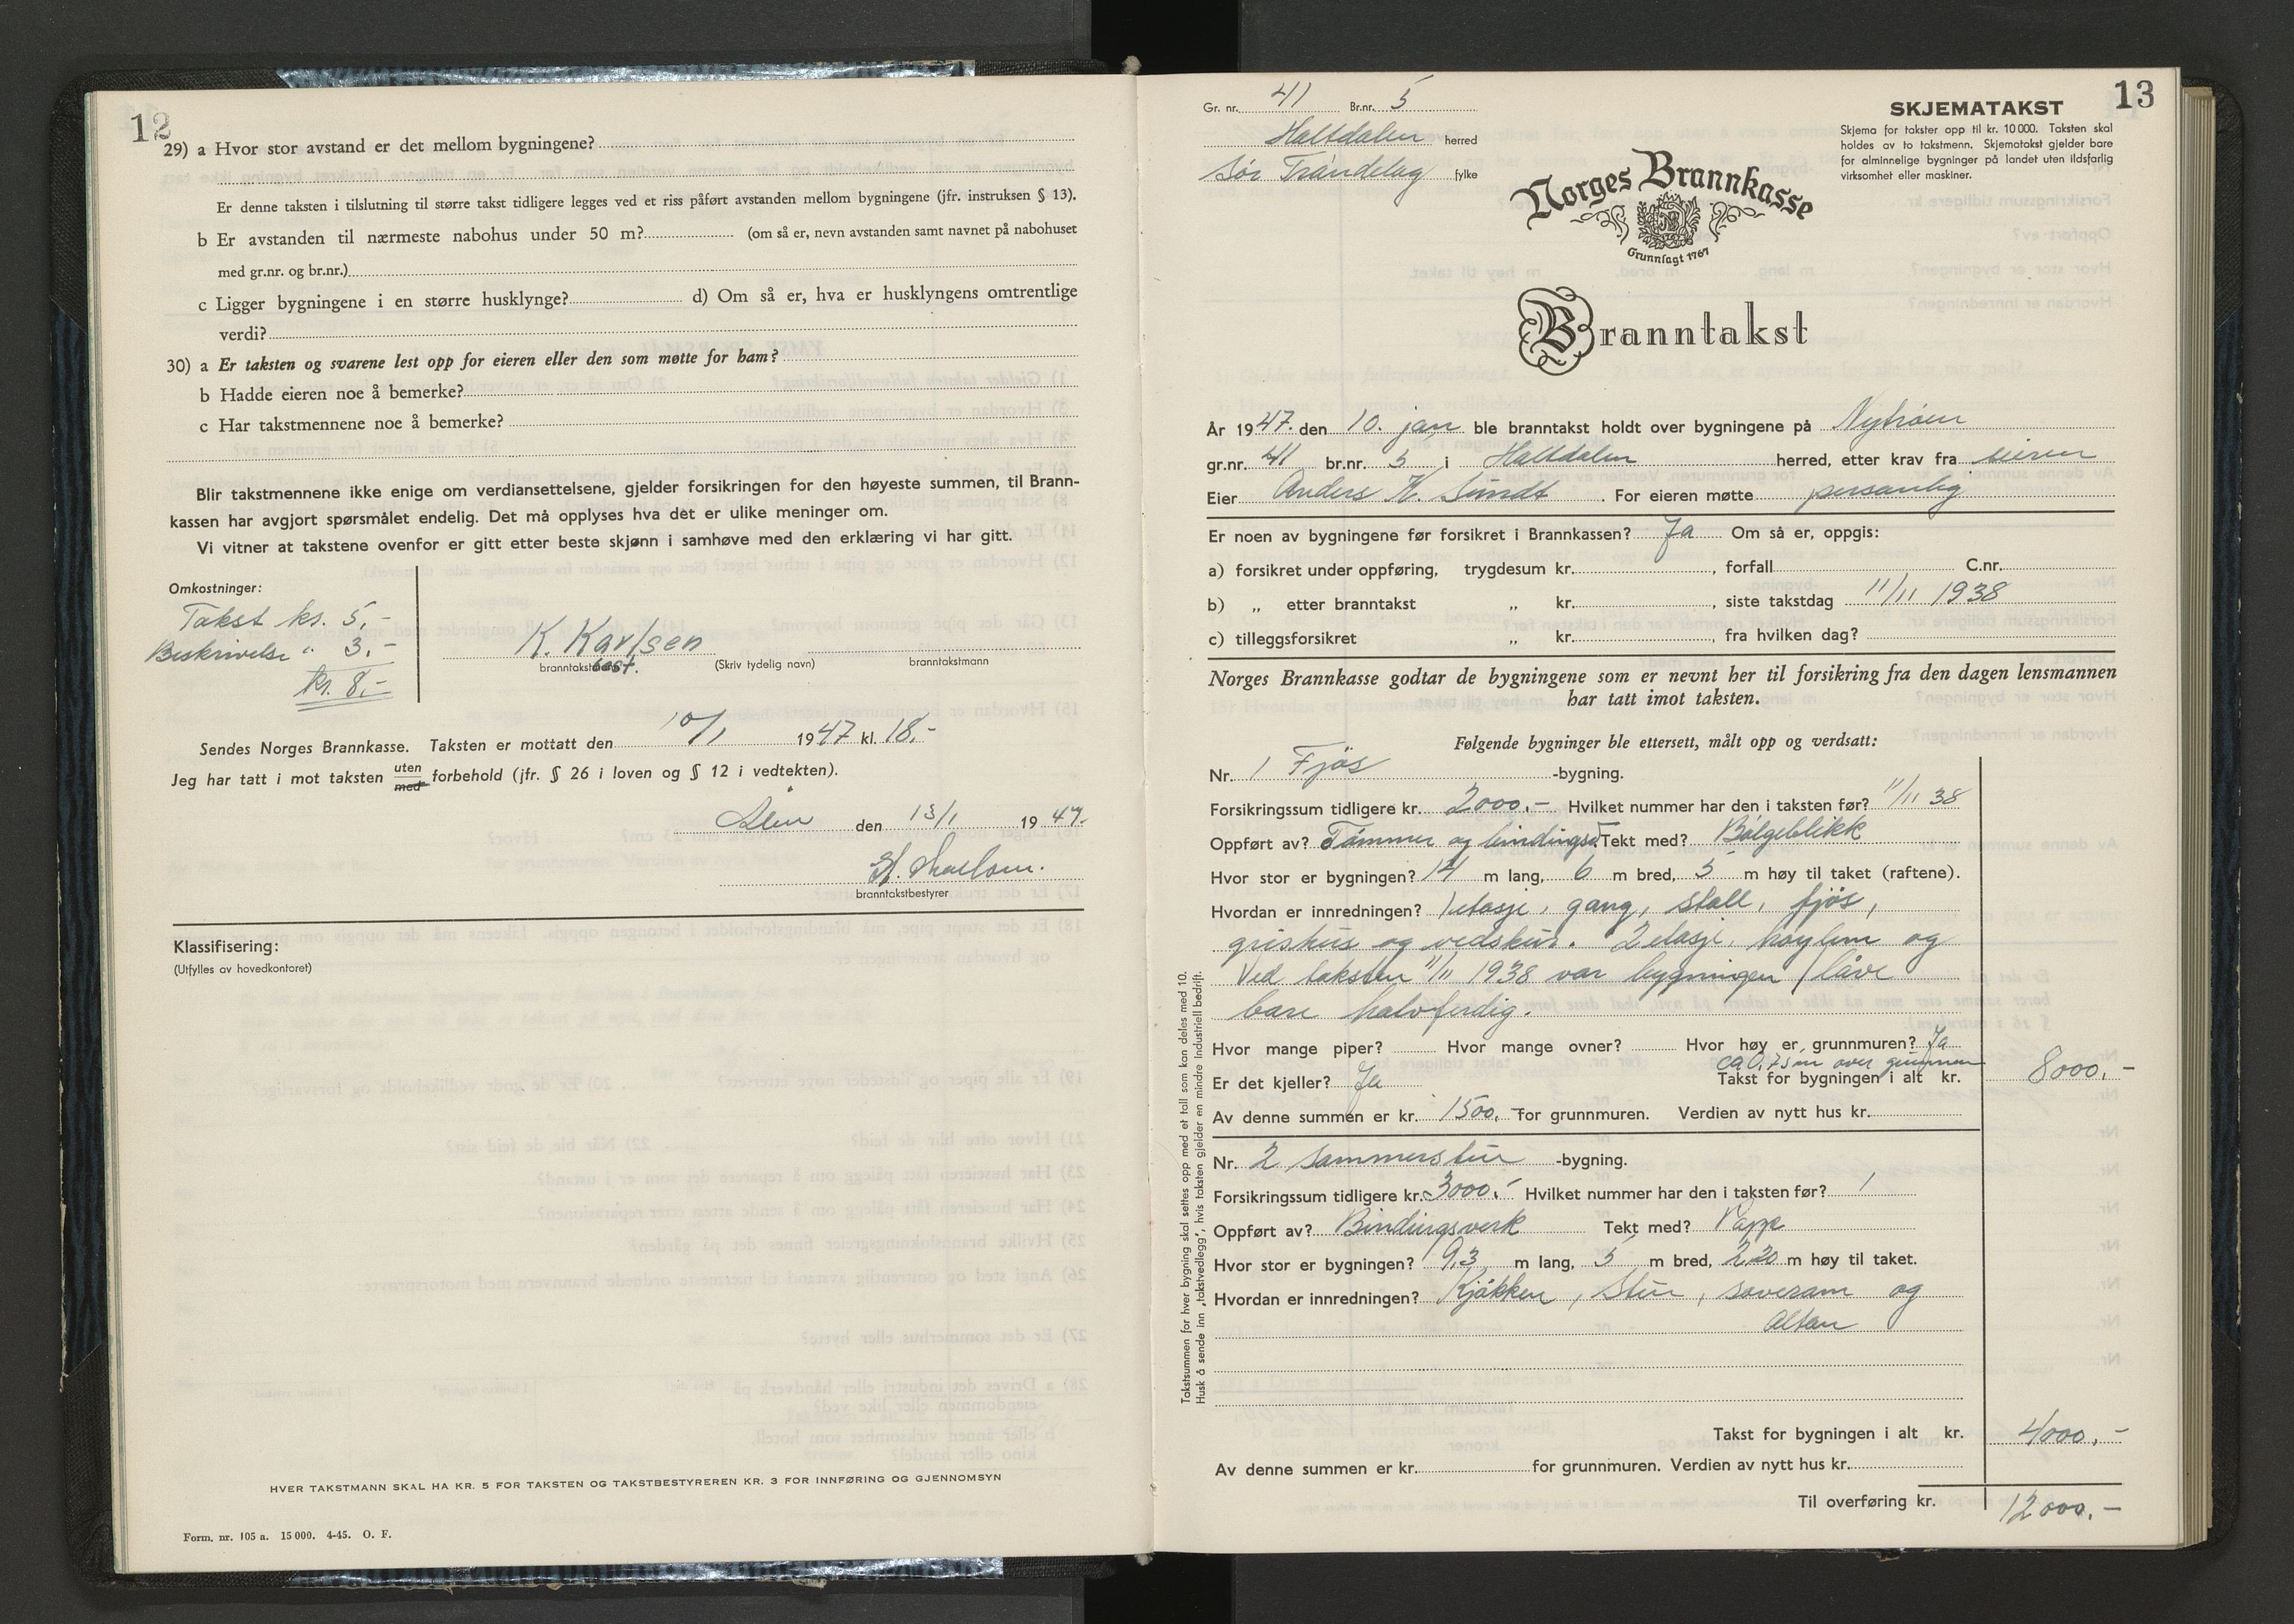 12
29) a Hvor stor avstand er det mellom bygningene?
Er denne taksten i tilslutning til større takst tidligere legges ved et riss påført avstanden mellom bygningene (jfr. instruksen § 13).
b Er avstanden til nærmeste nabohus under 50 m? (om så er, nevn avstanden samt navnet på nabohuset
med gr.nr. og br.nr.)
c Ligger bygningene i en større husklynge? d) Om så er, hva er husklyngens omtrentlige
verdi?
30) a Er taksten og svarene lest opp for eieren eller den som møtte for ham?
b Hadde eieren noe å bemerke?
c Har takstmennene noe å bemerke?
Blir takstmennene ikke enige om verdiansettelsene, gjelder forsikringen for den høyeste summen, til Brann-
kassen har avgjort spørsmålet endelig. Det må opplyses hva det er ulike meninger om.
Vi vitner at takstene ovenfor er gitt etter beste skjønn i samhøve med den erklæring vi har gitt.
Omkostninger:
Takst kr. 5,-
Beskrivelse " 3,-
kr. 8,-
K. Karlsen
branntakstbest. (Skriv tydelig navn) branntakstmann
Sendes Norges Brannkasse. Taksten er mottatt den 10/1 1947 kl. 18.-
Jeg har tatt i mot taksten uten med forbehold (jfr. § 26 i loven og § 12 i vedtekten).
Ålen den 13/1 1947.
branntakstbestyrer
Klassifisering:
(Utfylles av hovedkontoret)
HVER TAKSTMANN SKAL HA KR. 5 FOR TAKSTEN OG TAKSTBESTYREREN KR. 3 FOR INNFØRING OG GJENNOMSYN
Form. nr. 105 a. 15 000. 4-45. O. F.
13
Gr. nr. 41 Br.nr. 5
Haltdalen herred
Sør Trøndelag fylke
SKJEMATAKST
Skjema for takster opp til kr. 10 000. Taksten skal
holdes av to takstmenn. Skjematakst gjelder bare
for alminnelige bygninger på landet uten ildsfarlig
virksomhet eller maskiner.
Norges Brannkasse
Grunnlagt 1767
Branntakst
År 1947. den 10. jan ble branntakst holdt over bygningene på Nytrøen
gr.nr. 41 br.nr. 5 i Haltdalen herred, etter krav fra eieren
Eier Anders K. Sundt. For eieren møtte personlig
Er noen av bygningene før forsikret i Brannkassen? Ja Om så er, oppgis:
a) forsikret under oppføring, trygdesum kr. , forfall C.nr.
b) „ etter branntakst „ kr. , siste takstdag 11/11 1938
c) tilleggsforsikret „ kr. , fra hvilken dag?
Norges Brannkasse godtar de bygningene som er nevnt her til forsikring fra den dagen lensmannen
har tatt imot taksten.
Følgende bygninger ble ettersett, målt opp og verdsatt:
Nr. 1 Fjøs -bygning.
Forsikringssum tidligere kr. 2000.- Hvilket nummer har den i taksten før? 11/11 38
Oppført av? Tømmer og bindingsv. Tekt med? Bølgeblikk
Hvor stor er bygningen? 14 m lang, 6 m bred, 5 m høy til taket (raftene).
Hvordan er innredningen? 1 etasje, gang, stall, fjøs,
grishus og vedskur. 2 etasje, høylem og
Ved taksten 11/11 1938 var bygningen / låve
bare halvferdig.
Hvor mange piper? Hvor mange ovner? Hvor høy er grunnmuren? Ja
ca 0,75 m over grunnen
Er det kjeller? Ja Takst for bygningen i alt kr. 8000,-
Av denne summen er kr. 1500,- for grunnmuren. Verdien av nytt hus kr.
Nr. 2 Sommerstue -bygning.
Forsikringssum tidligere kr. 3000,- Hvilket nummer har den i taksten før? 1
Oppført av? Bindingsverk Tekt med? Papp
Hvor stor er bygningen? 9,3 m lang, 5 m bred, 2,20 m høy til taket.
Hvordan er innredningen? Kjøkken, Stue, soverom og
Altan
Takst for bygningen i alt kr. 4000,-
Av denne summen er kr. for grunnmuren. Verdien av nytt hus kr.
Til overføring kr. 12000,-
Takstsummen for hver bygning skal settes opp med et tall som kan deles med 10.
Husk å sende inn „takstvedlegg", hvis taksten gjelder en mindre industriell bedrift.